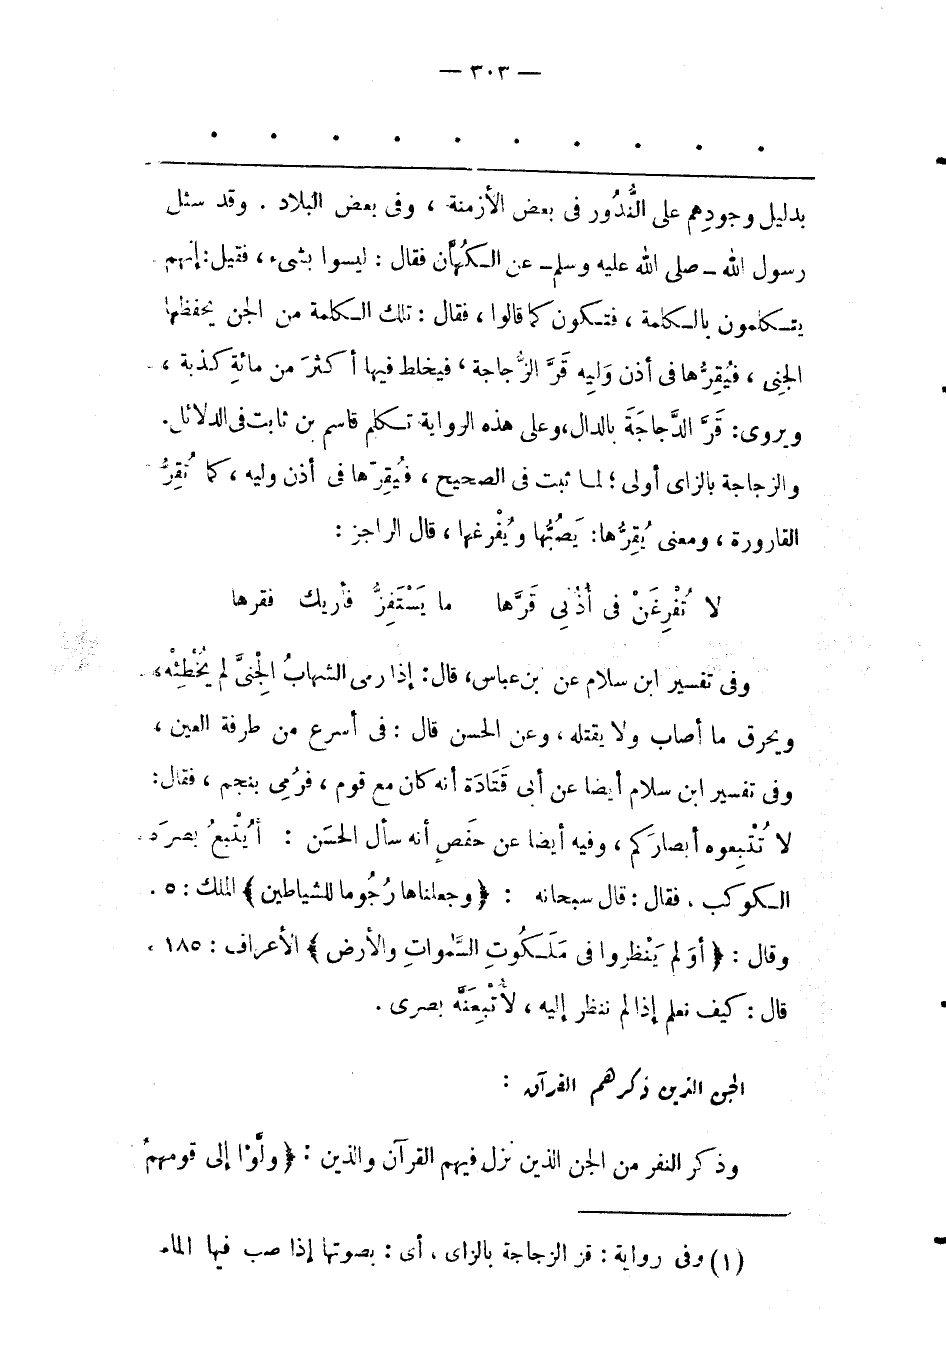 — ٣٠٣ —
بدليل وجودِهم على النُّدُور فى بعض الأزمنة ، وفى بعض البلاد . وقد سئل
رسول الله ــ صلى الله عليه وسلم ــ عن الـكُهَّان فقال : ليسوا بشىء ، فقيل : إنهم
يتـكلمون بالـكلمة ، فتـكون كما قالوا ، فقال : تلك الـكلمة من الجن يحفظها
الجنى ، فيُقِرُّها فى أذن وَلِيه قَرَّ الزُّجاجة ، فيخلط فيها أكثرَ من مائةِ كذبة ،
ويروى : قَرَّ الدَّجاجَةَ بالدال ، وعلى هذه الرواية تـكلم قاسم بن ثابت فى الدلائل .
والزجاجة بالزاى أولى ؛ لمـا ثبت فى الصحيح ، فيُقِرّها فى أذن وليه ، كما تُقِرُّ
القارورة ، ومعنى يُقِرُّها : يَصُبُّها ويُفْرغها ، قال الراجز :
لا تُفْرِغَنْ فى أُذْنِى قَرَّها ما يَسْتَفِزُّ فأريك فقرها
وفى تفسير ابن سلام عن بن عباس ، قال : إذا رمى الشهابُ الجِنىَّ لم يُخْطِئْه ،
ويحرق ما أصاب ولا يقتله ، وعن الحسن قال : فى أسرع من طرفة العين ،
وفى تفسير ابن سلام أيضا عن أبى قَتَادَة أنه كان مع قوم ، فرُمِى بنجم ، فقال :
لا تُتْبِعوه أبصارَكم ، وفيه أيضا عن حَفصٍ أنه سأل الحسَن : أيُتْبِعُ بصرَه
الـكوكب . فقال : قال سبحانه : ﴿ وجعلناها رُجُوما للشياطين ﴾ الملك : ٥ .
وقال : ﴿ أوَ لم يَنْظروا فى مَلَـكُوتِ السَّمٰواتِ والأرض ﴾ الأعراف : ١٨٥ .
قال : كيف نعلم إذا لم ننظر إليه ، لأُتْبِعَنَّه بصرى .
الجن الذين ذكرهم القرآن :
وذكر النفر من الجن الذين نزل فيهم القرآن والذين : ﴿ ولَّوْا إلى قومهم
(١) وفى رواية : قز الزجاجة بالزاى ، أى : بصوتها إذا صب فيها الماء